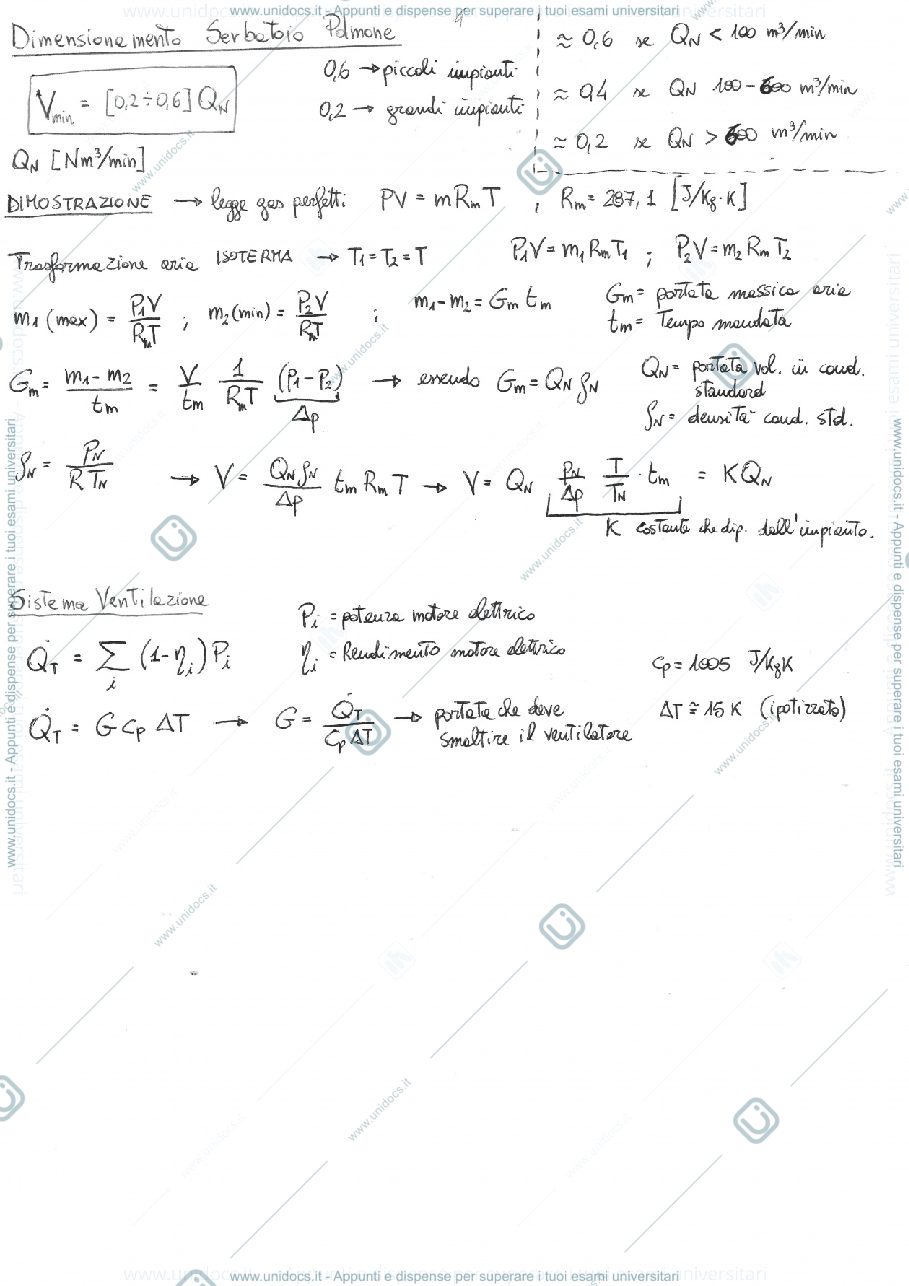 www.unidocs.it - Appunti e dispense per superare i tuoi esami universitari
Dimensionamento Serbatoio Polmone
V_min = [0,2÷0,6] Q_N
0,6 → piccoli impianti
0,2 → grandi impianti
≈ 0,6 se Q_N < 100 m³/min
≈ 0,4 se Q_N 100 - 600 m³/min
≈ 0,2 se Q_N > 600 m³/min
Q_N [Nm³/min]
DIMOSTRAZIONE → legge gas perfetti PV = m R_m T ; R_m = 287,1 [J/Kg·K]
Trasformazione aria ISOTERMA → T₁ = T₂ = T P₁V = m₁ R_m T₁ ; P₂V = m₂ R_m T₂
m₁ (max) = P₁V / R_m T ; m₂ (min) = P₂V / R_m T ; m₁ - m₂ = G_m t_m
G_m = portata massica aria
t_m = Tempo mandata
G_m = (m₁ - m₂) / t_m = V / t_m 1 / R_m T (P₁ - P₂) → essendo G_m = Q_N ρ_N
Δp
Q_N = portata vol. in cond. standard
ρ_N = densità cond. std.
ρ_N = P_N / R T_N → V = Q_N ρ_N / Δp t_m R_m T → V = Q_N p_N / Δp T / T_N · t_m = K Q_N
K costante che dip. dall'impianto.
Sistema Ventilazione
Q̇_T = ∑_i (1 - η_i) P_i
P_i = potenza motore elettrico
η_i = Rendimento motore elettrico
c_p = 1005 J/KgK
Q̇_T = G c_p ΔT → G = Q̇_T / c_p ΔT → portata che deve
smaltire il ventilatore
ΔT ≅ 15 K (ipotizzato)
www.unidocs.it - Appunti e dispense per superare i tuoi esami universitari